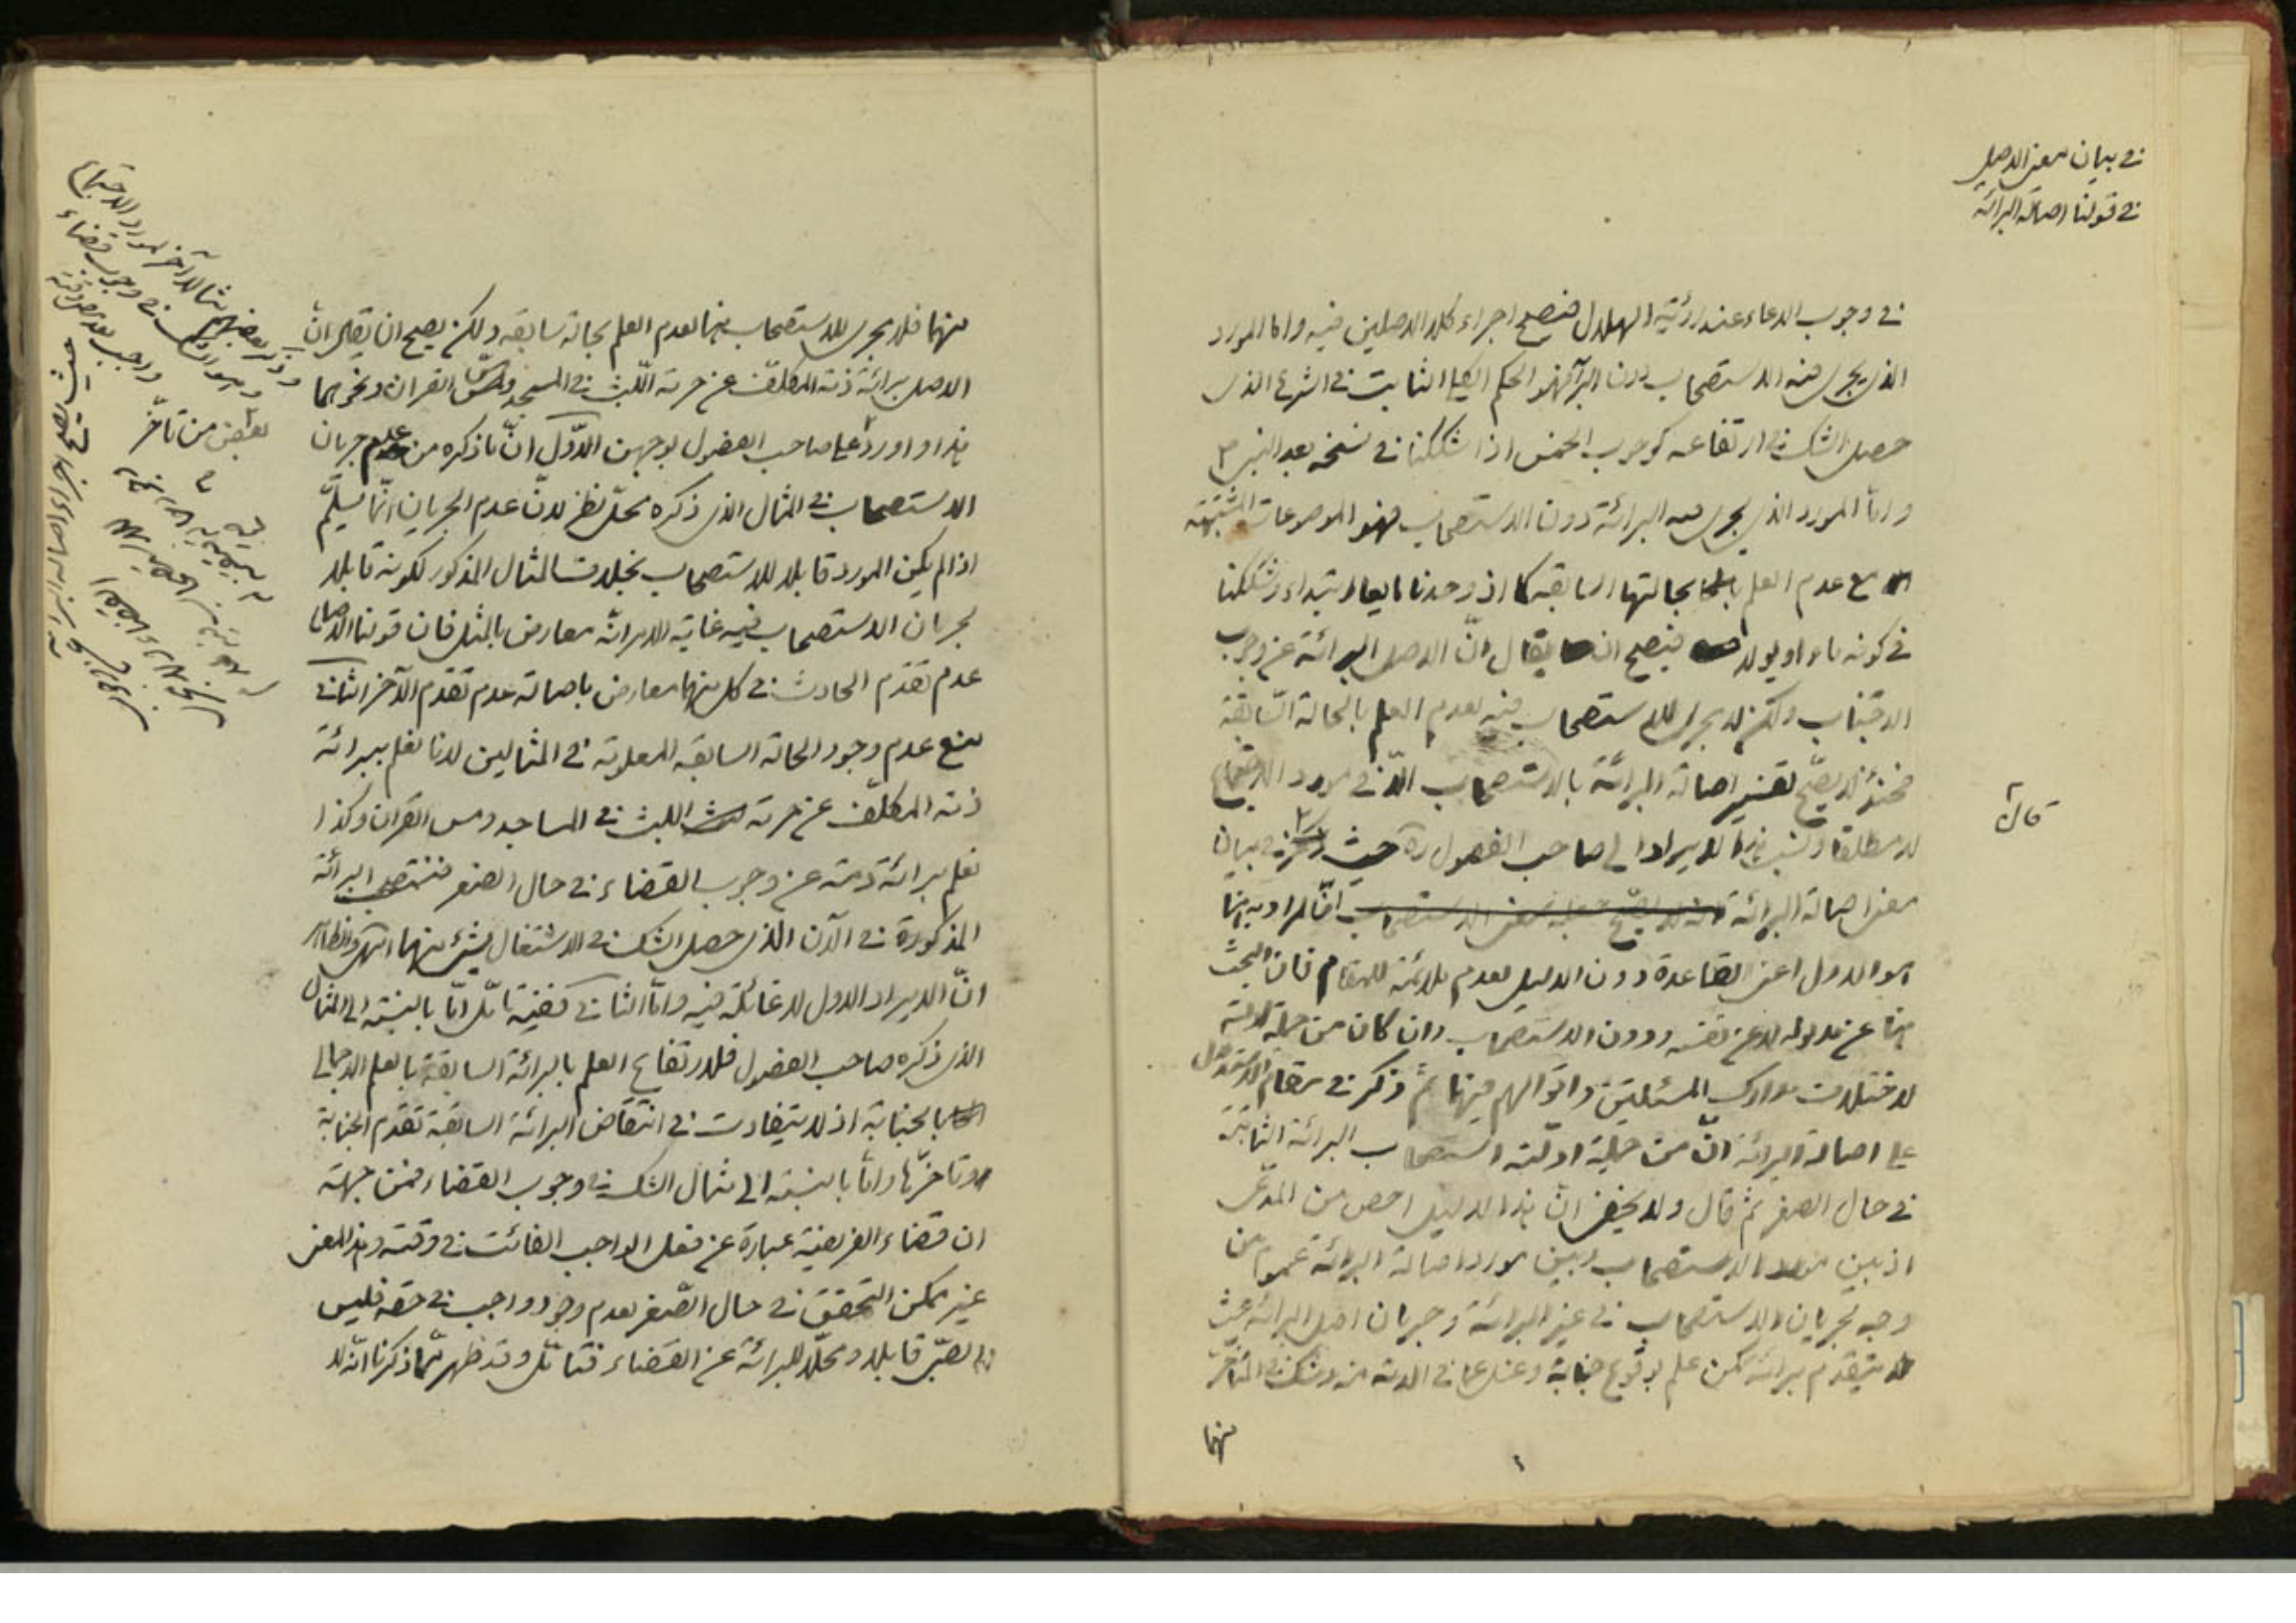 في بيان معنى الاصل
في قولنا اصالة البرائة
في وجوب الدعاء عند رؤية الهلال فيصح اجراء كلا الاصلين فيه واما المورد
الذي يجري فيه الاستصحاب دون البرائة فهو الحكم الثابت في الشرع الذي
حصل الشك في ارتفاعه كوجوب الخمس اذا شككنا في نسخه بعد النبي ص
واما المورد الذي يجري فيه البرائة دون الاستصحاب فهو الموضوعات المشتبهة
مع عدم العلم بحالتها السابقة كما اذا وجدنا مايعا ابتداء وشككنا
في كونه ماء او بولا فيصح ان يقال انّ الاصل البرائة عن وجوب
الاجتناب ولكن لا يجري الاستصحاب فيه لعدم العلم بالحالة السّابقة
فحينئذ لا يصحّ تفسير اصالة البرائة بالاستصحاب الّا في مورد الاجتماع
قال
لا مطلقا ونسب هذا الايراد الى صاحب الفصول ره حيث في بيان
معنى اصالة البرائة انّ المراد به هنا
هو الاول اعنى القاعدة دون الدليل لعدم ملائمته للمقام فان البحث
هنا عن مدلوله لا عن نفسه ودون الاستصحاب وان كان من جملة ادلته
لاختلاف مدارك المسئلتين واقوالهم فيها ثمّ ذكر في مقام الاستدلال
على اصالة البرائة انّ من جملة ادلّته استصحاب البرائة الثابتة
في حال الصغر ثم قال ولا يخفى انّ هذا الدليل اخص من المدّعى
اذ بين مورد الاستصحاب وبين مورد اصالة البرائة عموم من
وجه لجريان الاستصحاب في غير البرائة وجريان اصل البرائة حيث
لا يتقدم برائة كمن علم بوقوع جنابة وغسل عنه وشك في المتأخر
منهما
منهما فلا يجري الاستصحاب فيهما لعدم العلم بحالة سابقة ولكن يصح ان يقال انّ
الاصل برائة ذمّة المكلّف عن حرمة اللّبث في المسجد ومسّ القران ونحوهما
هذا واورد على صاحب الفصول بوجهين الاوّل انّ ما ذكره من عدم جريان
الاستصحاب في المثال الذي ذكره محلّ نظر لانّ عدم الجريان انّما يسلّم
اذا لم يكن المورد قابلا للاستصحاب بخلاف المثال المذكور لكونه قابلا
لجريان الاستصحاب فيه غاية الامر انّه معارض بالمثل فان قولنا الاصل
عدم تقدّم الحادث في كل منهما معارض باصالة عدم تقدم الآخر الثاني
منع عدم وجود الحالة السابقة المعلومة في المثالين لانا نعلم ببرائة
ذمة المكلّف عن حرمة اللبث في المساجد ومس القران وكذا
نعلم برائة ذمته عن وجوب القضاء في حال الصغر فنستصحب البرائة
المذكورة في الآن الذي حصل الشك في الاشتغال بشيء منهما انتهى والظاهر
انّ الايراد الاول لا غائلة فيه وامّا الثاني ففيه تأمّل امّا بالنسبة الى المثال
الذي ذكره صاحب الفصول فلارتفاع العلم بالبرائة السابقة بالعلم الاجمالي
بالجنابة اذ لا يتفاوت في انتقاض البرائة السابقة تقدم الجنابة
وتاخرّها وامّا بالنسبة الى مثال الشك في وجوب القضاء فمن جهة
ان قضاء الفريضة عبارة عن فعل الواجب الفائت في وقته وهذا المعنى
غير ممكن التحقق في حال الصّغر لعدم وجود واجب في حقه فليس
الصبيّ قابلا ومحلّا للبرائة عن القضاء فتأمّل وقد ظهر ممّا ذكرنا انّه لا
وذكر بعضهم مثالا آخر لمورد الاجتماع
وهو الشك في وجوب قضاء
واجب بعد
بعض من تأخّر